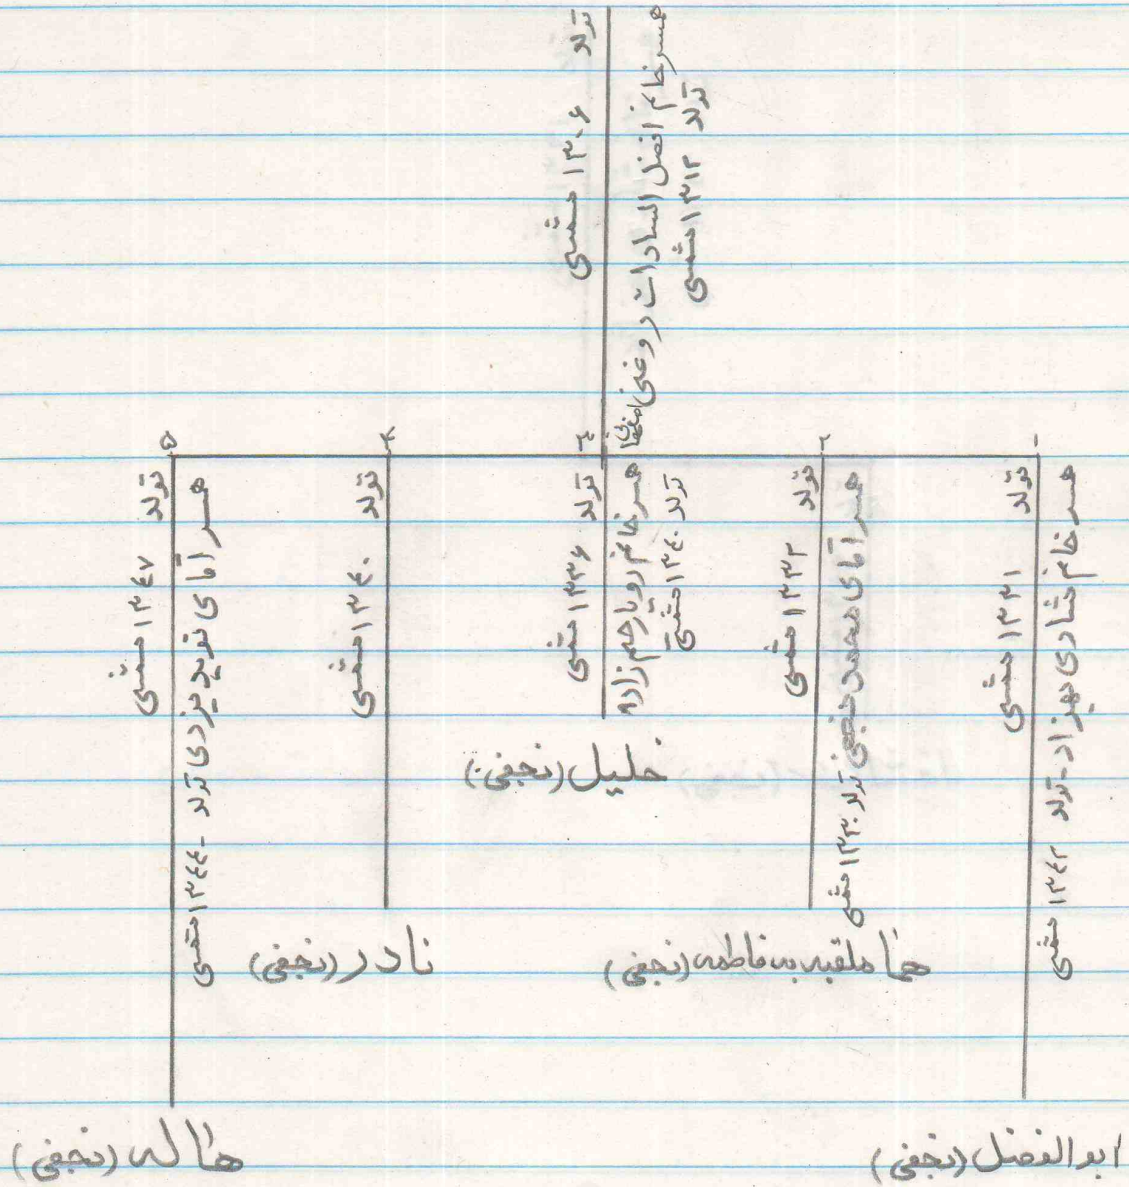 تولد ۱۳۰۶ شمسی
همسر خانم افضل السادات روغنی اصفهانی
تولد ۱۳۱۲ شمسی
۱
تولد ۱۳۳۱ شمسی
همسر خانم شادی بهزاد - تولد ۱۳۴۲ شمسی
ابوالفضل (نجفی)
۲
تولد ۱۳۳۲ شمسی
همسر آقای محمد نجفی تولد ۱۳۳۰ شمسی
هما ملقبه به فاطمه (نجفی)
۳
تولد ۱۳۳۶ شمسی
همسر خانم رویا رحیم زاده
تولد ۱۳۴۰ شمسی
خلیل (نجفی)
۴
تولد ۱۳۴۰ شمسی
نادر (نجفی)
۵
تولد ۱۳۴۷ شمسی
همسر آقای نوید یزدی تولد - ۱۳۴۴ شمسی
هاله (نجفی)